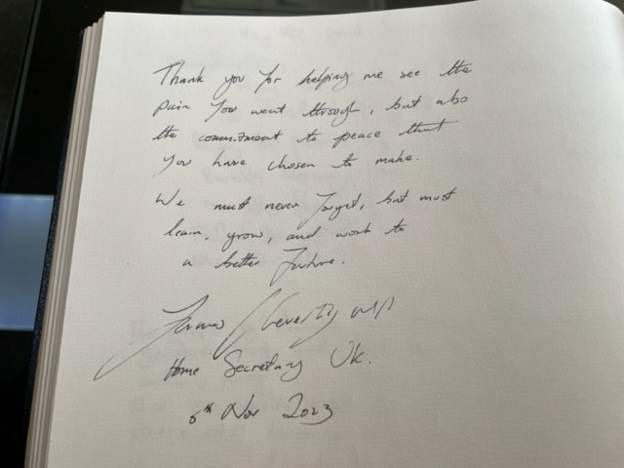 Thank you for helping me see the
pain you went through, but also
the commitment to peace that
you have chosen to make.
We must never forget, but must
learn, grow, and work to
a better future.
James Cleverly MP
Home Secretary UK.
Nov 2023